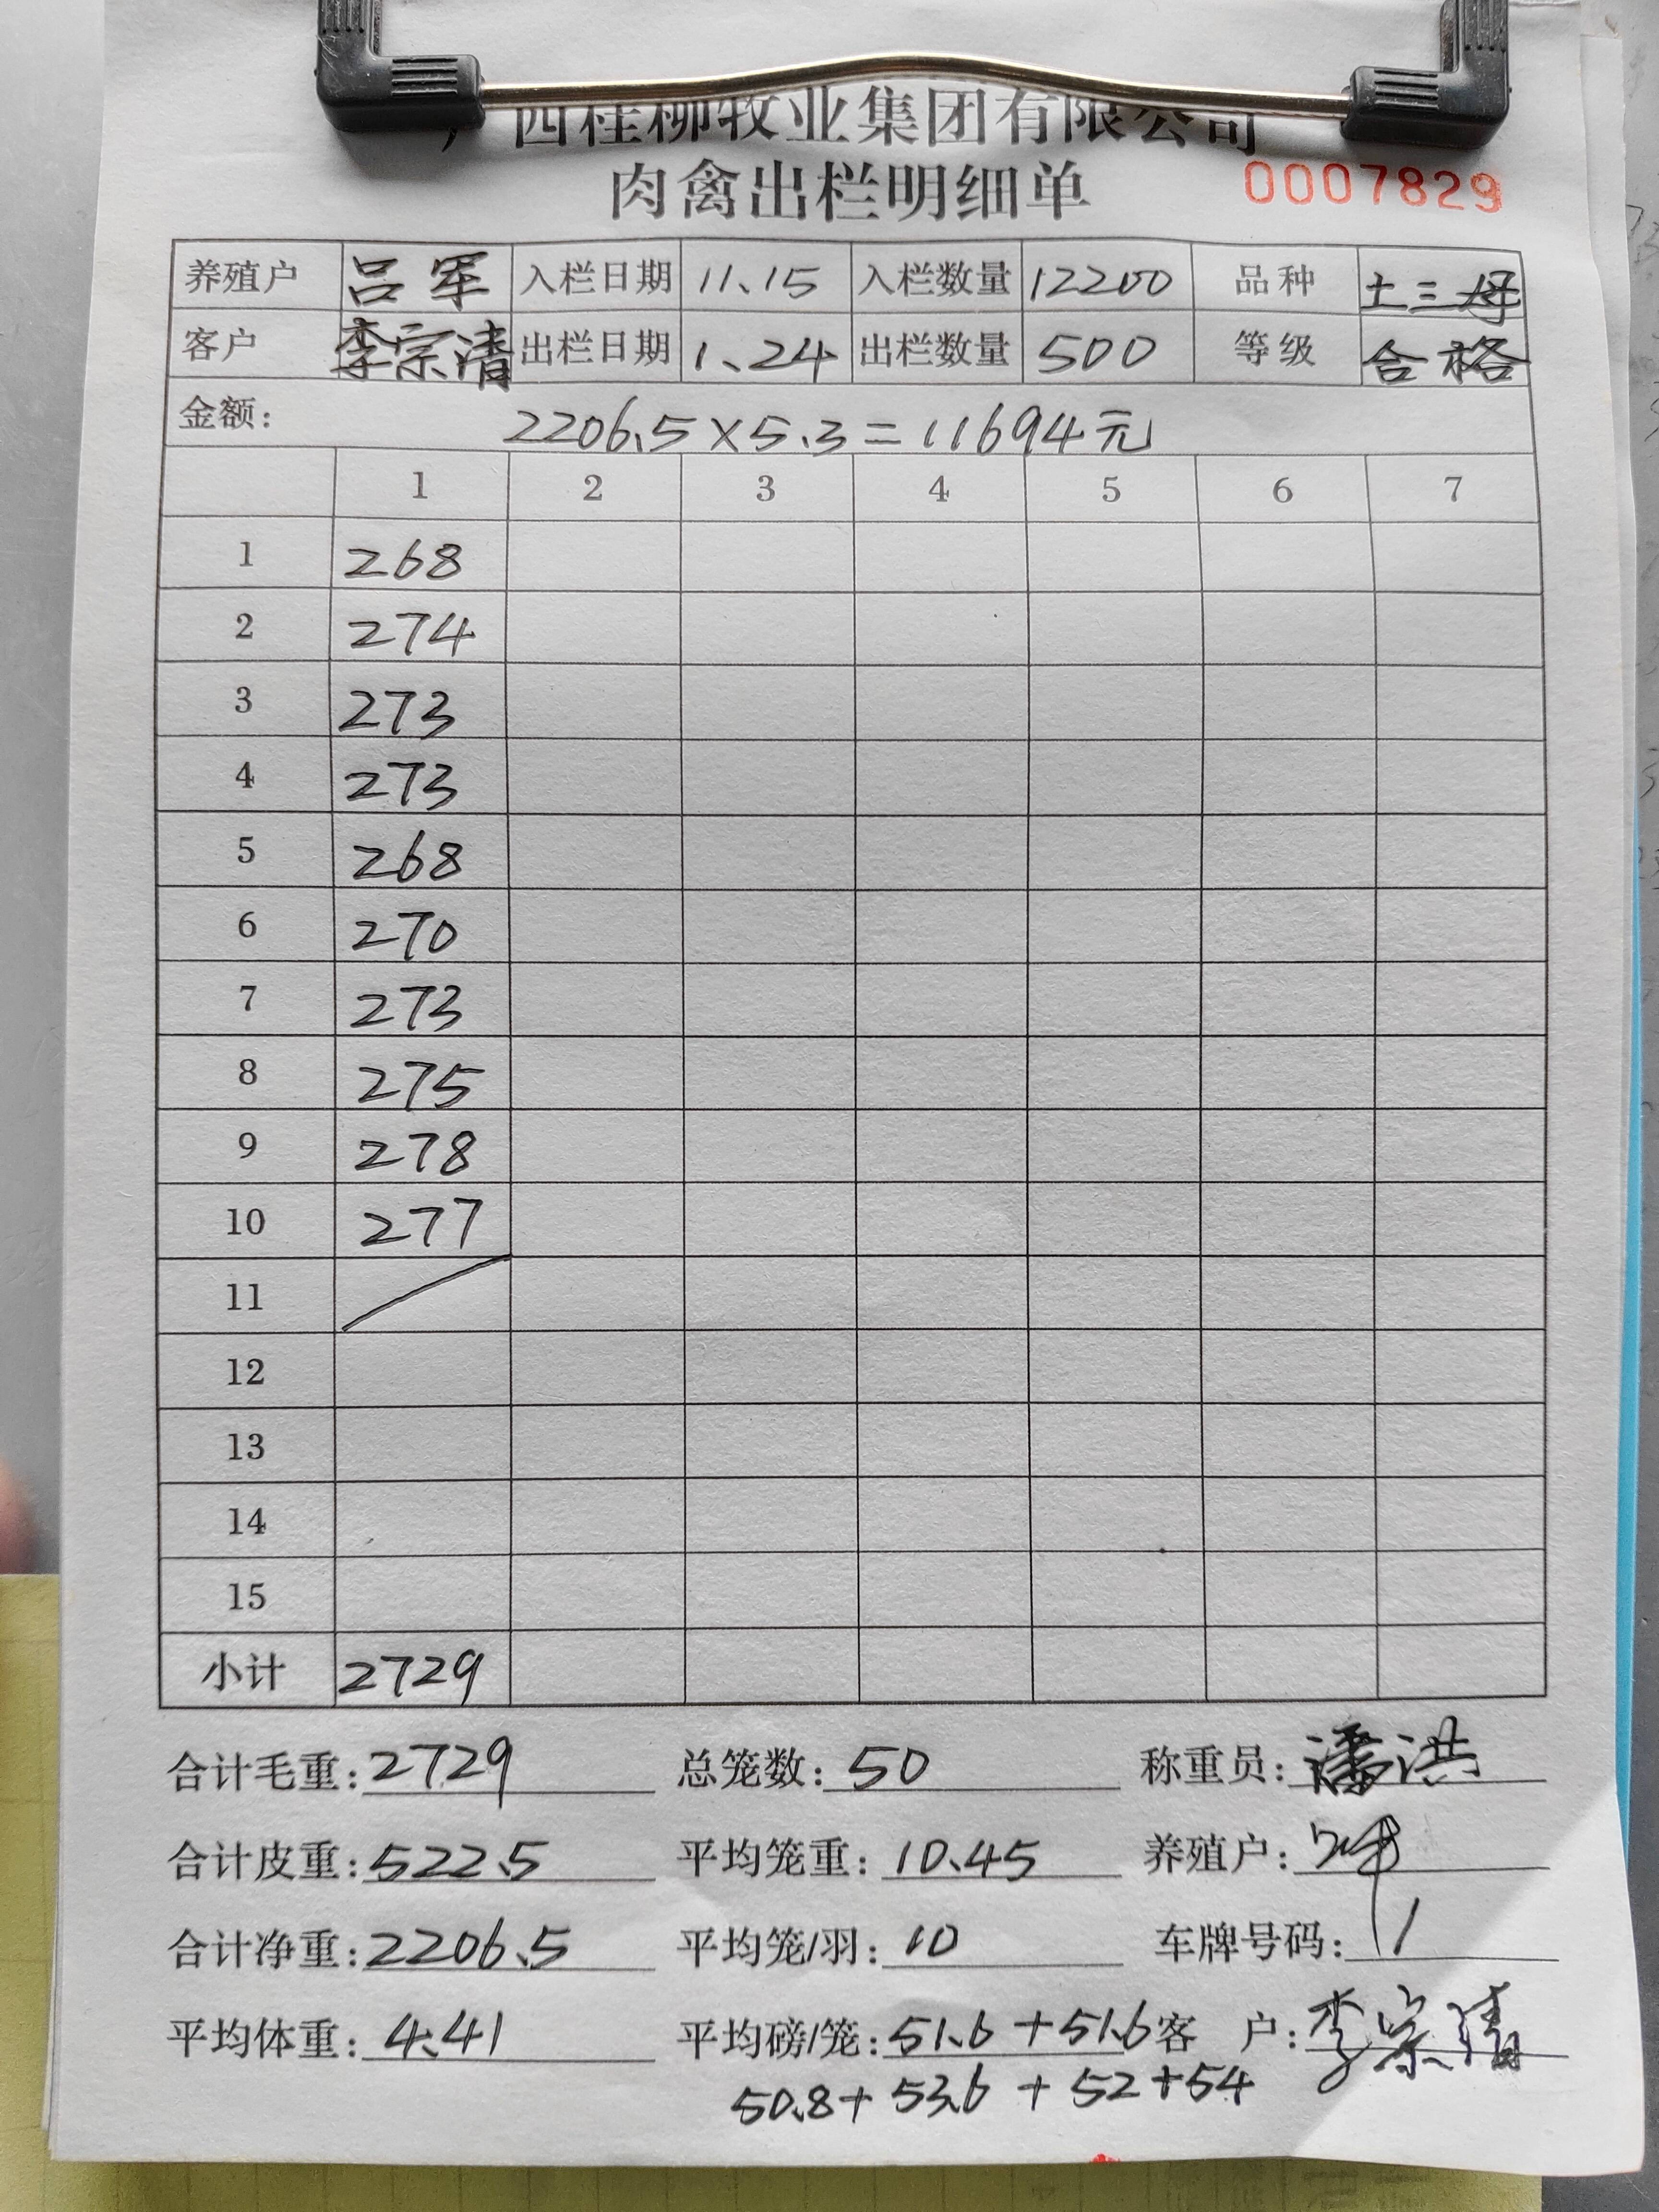 西桂柳牧业集团有限公司
肉禽出栏明细单 0007829
养殖户 吕军 入栏日期 11.15 入栏数量 12200 品种 土三母
客户 李宗清 出栏日期 1.24 出栏数量 500 等级 合格
金额: 2206.5×5.3=11694元
1 2 3 4 5 6 7
1 268
2 274
3 273
4 273
5 268
6 270
7 273
8 275
9 278
10 277
11
12
13
14
15
小计 2729
合计毛重: 2729 总笼数: 50 称重员: 潘洪
合计皮重: 522.5 平均笼重: 10.45 养殖户:
合计净重: 2206.5 平均笼/羽: 10 车牌号码:
平均体重: 4.41 平均磅/笼: 51.6+51.6 客户: 李宗清
50.8+53.6+52+54